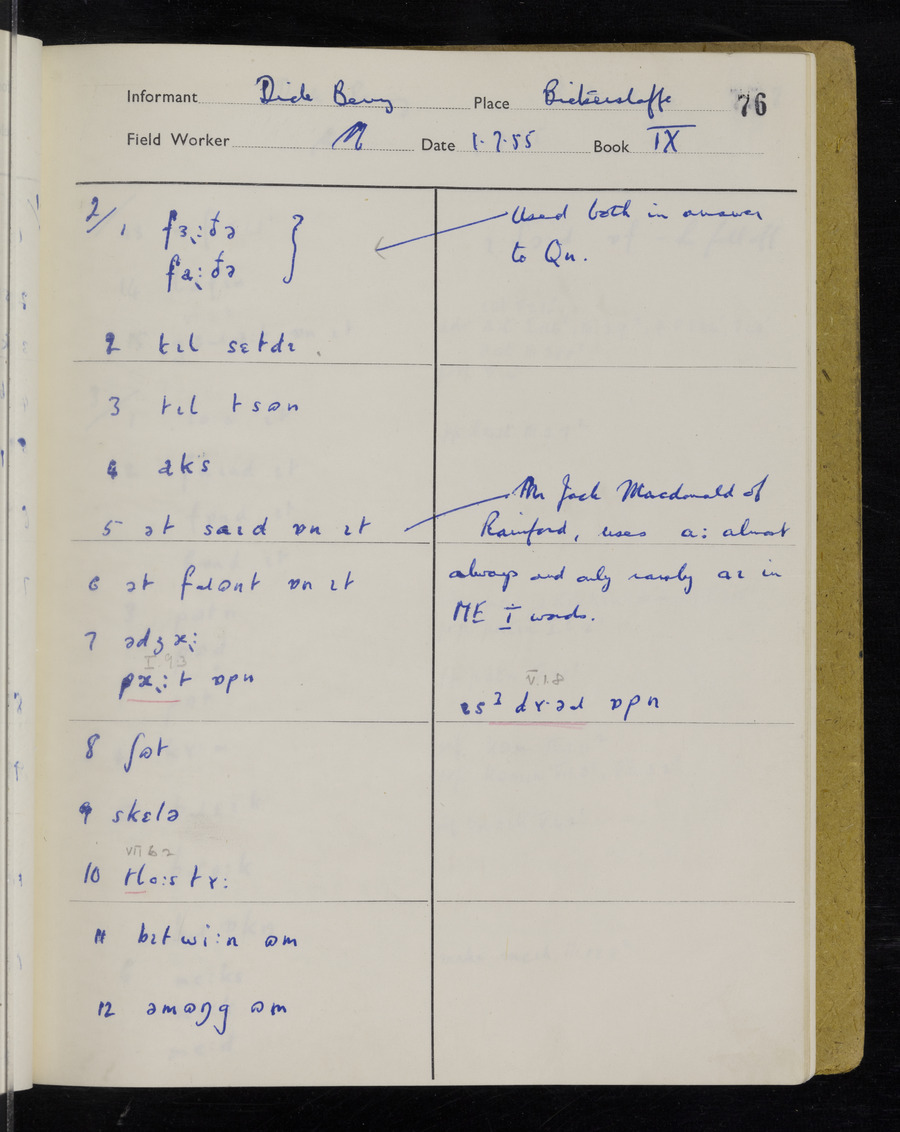 Informant Dick Berry Place Bickerstaffe 76
Field Worker N Date 1.7.55 Book IX
2/ 1 fɜ˞:ðə } Used both in answer
fa˞:ðə to Qn.
2 tɪl sɛtdɪ
3 tɪl tsɷn
4 aks Mr Jack Macdonald of
5 ət saɪd ɒn ɪt Rainford, uses a: almost
always and only rarely aɪ in
6 ət fɹɷnt ɒn ɪt
ME Ī words.
7 ədʒ
I.9.3
ɒpn
V.1.8
ɒpn
8 ʃɷt
9 skɛlə
VII 6 2
10
11 bɪtwi:n ɷm
12 əmɷŋg ɷm